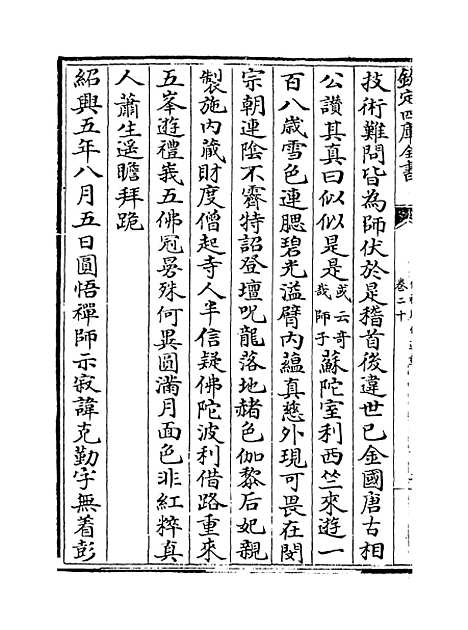 欽定四庫全書
卷二十
技術難問皆為師伏於是稽首後違世已金國唐古相
公讃其真曰似似是是或云奇哉師子蘇陀室利西竺來遊一
百八歲雪色連腮碧光溢臂内蘊真慈外現可畏在閔
宗朝連陰不霽特詔登壇呪龍落地赭色伽黎后妃親
製施内藏財度僧起寺人半信疑佛陀波利借路重來
五峯遊禮峩五佛冠曷殊何異圓滿月面色非紅粹真
人蕭生遥瞻拜跪
紹興五年八月五日圓悟禪師示寂諱克勤字無着彭